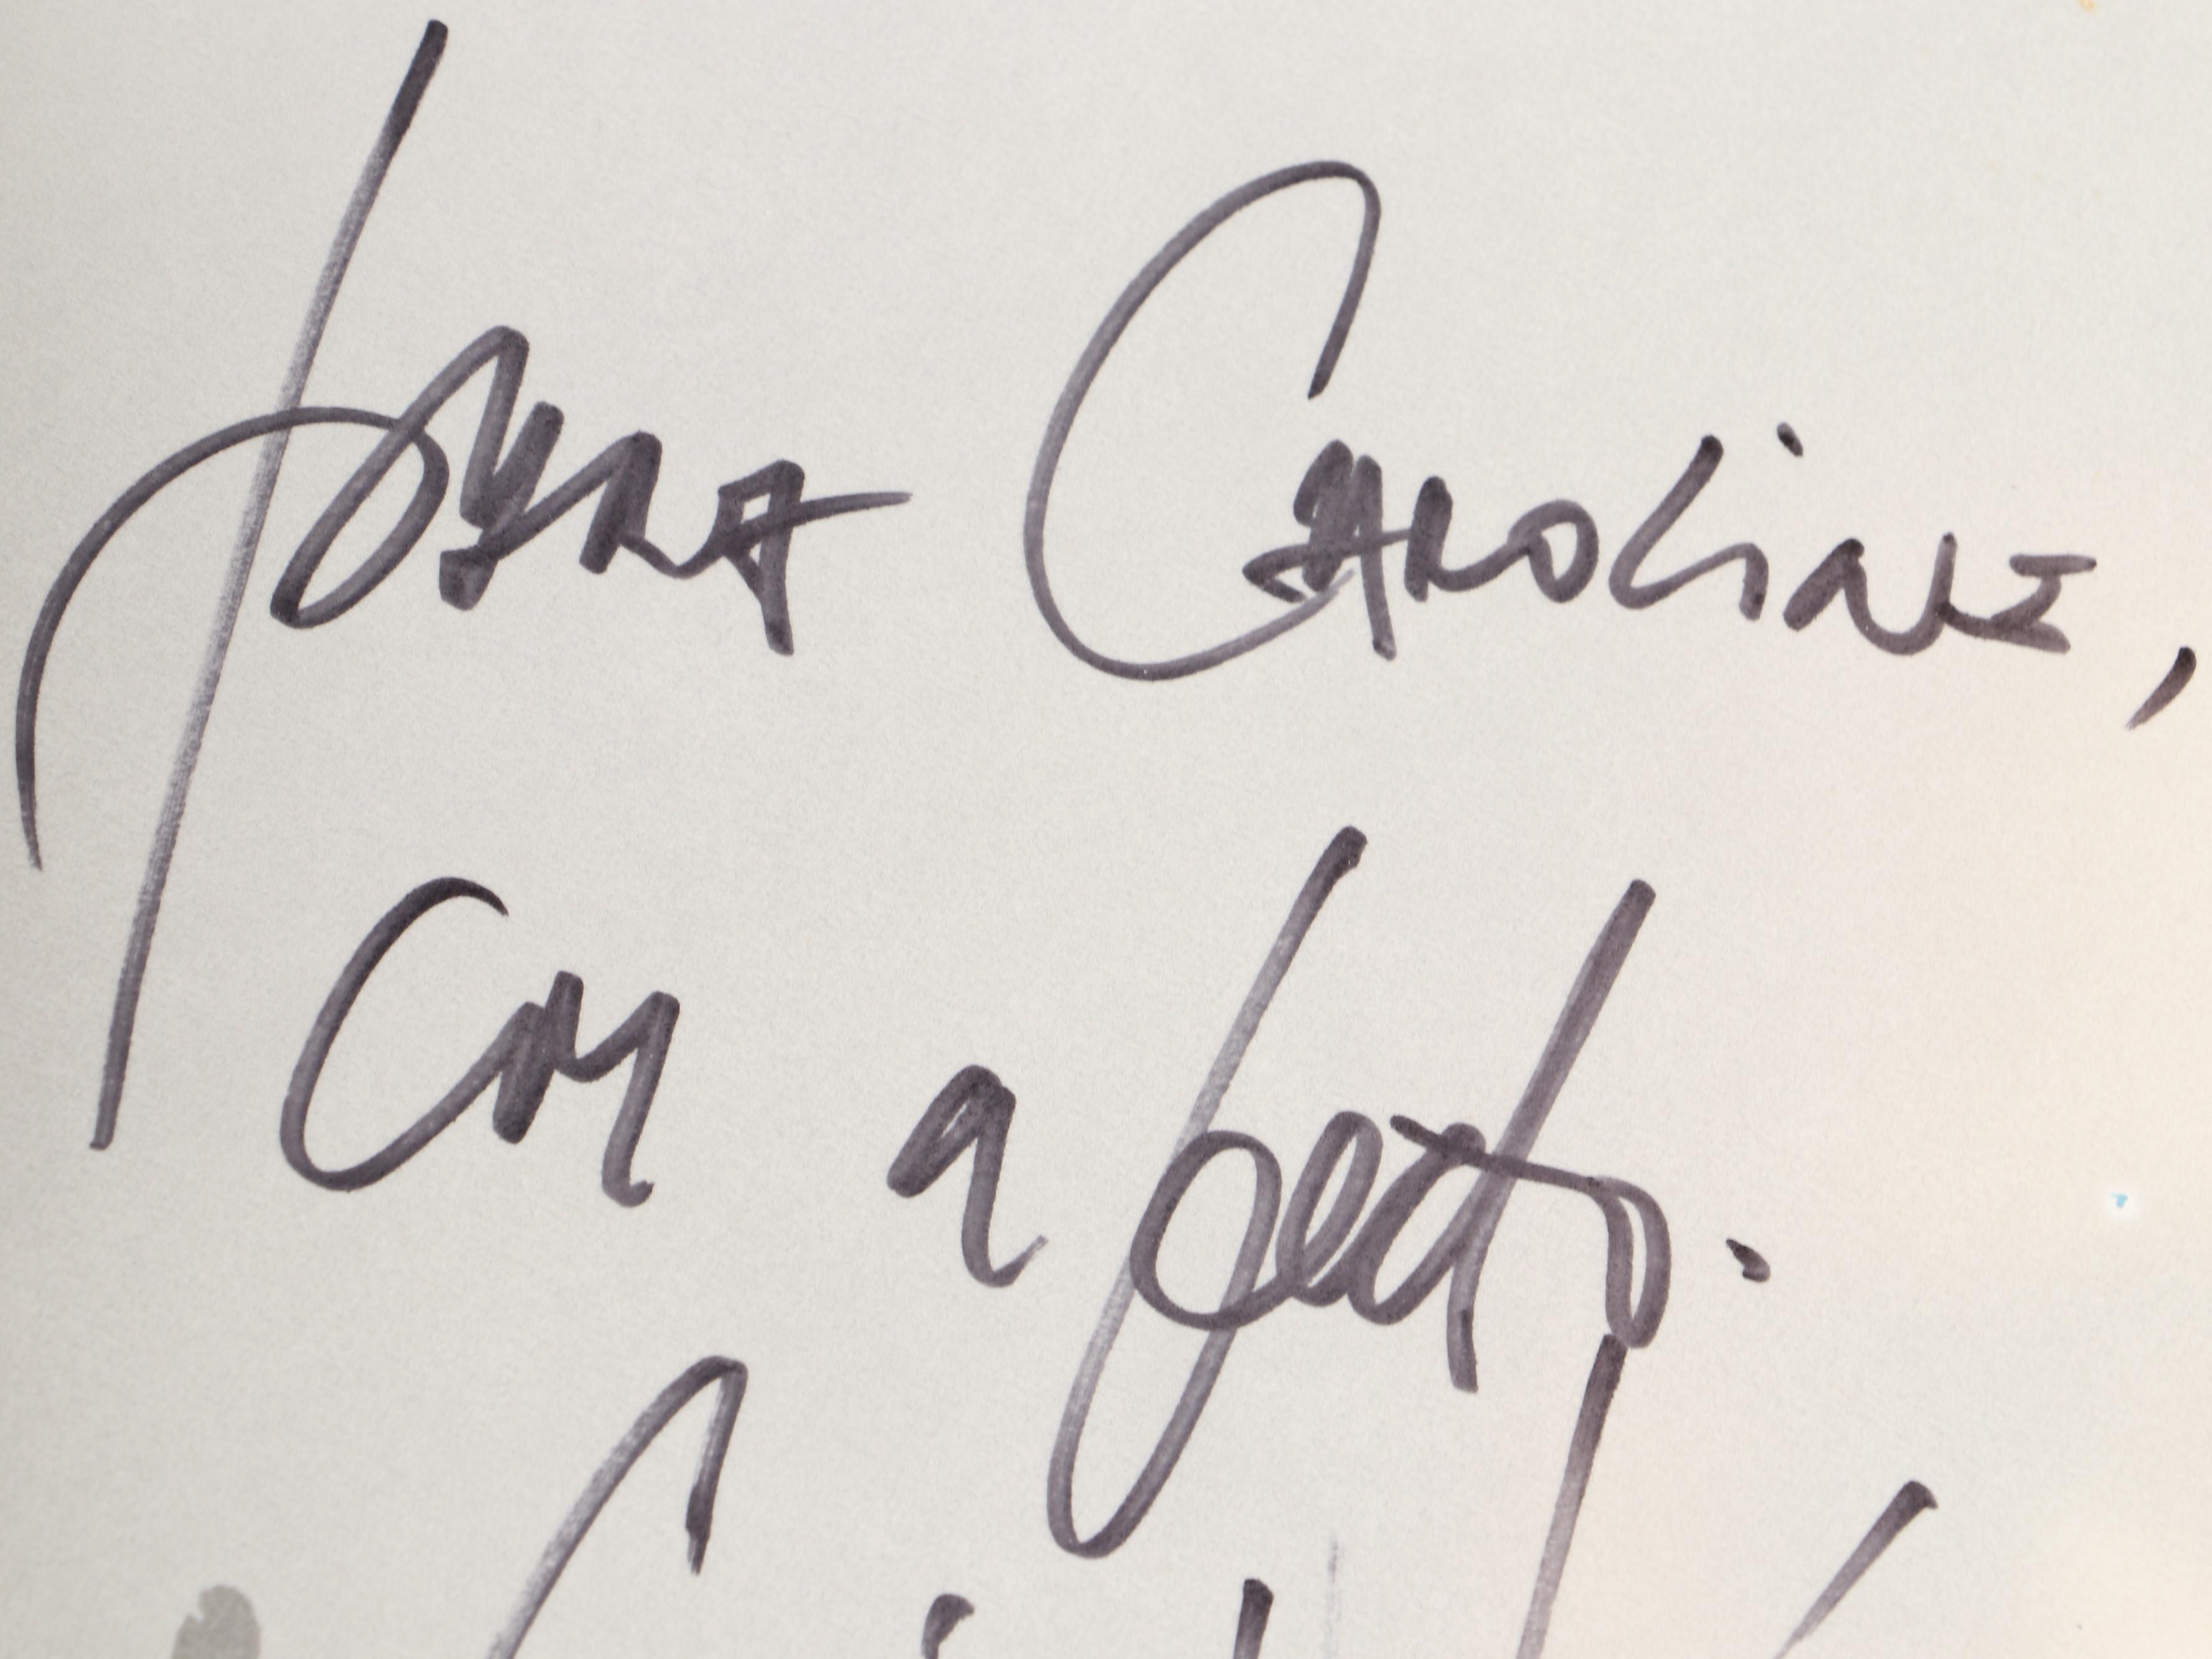 Para Caroline,
Con afecto.